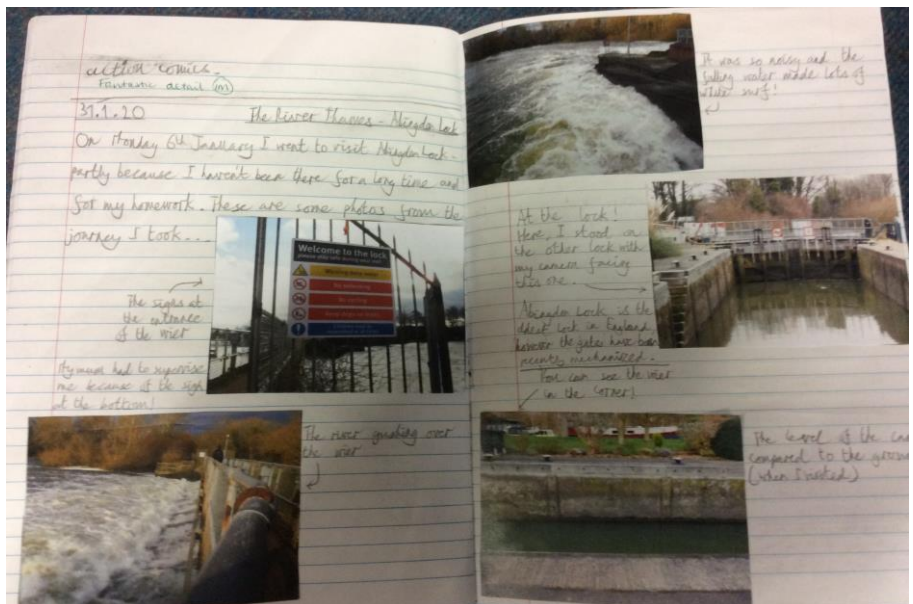 action comics.
Fantastic detail
31.1.20
The River Thames - Abingdon Lock
On Monday 6th January I went to visit Abingdon Lock -
partly because I haven't been there for a long time and
for my homework. These are some photos from the
journey I took...
Welcome to the lock
please stay safe during your visit
Warning deep water
No swimming
No cycling
The signs at
the entrance
of the wier
My mum had to supervise
me because of the sign
at the bottom!
The river gushing over
the wier
It was so noisy and the
falling water made lots of
white surf!
At the lock!
Here, I stood on
the other lock with
my camera facing
this one.
Abingdon Lock is the
oldest lock in England,
however the gates have been
recently mechanized.
You can see the wier
in the corner!
The level of the
compared to the
(when I visited)